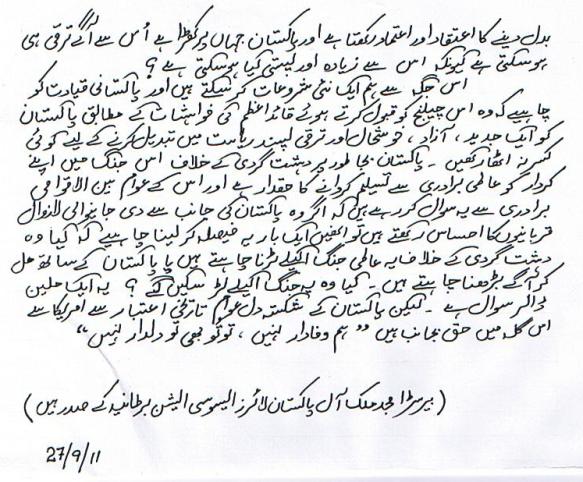 بدل دینے کا اعتقاد اور اعتماد رکھتا ہے اور پاکستان جہاں پر کھڑا ہے اُس سے آگے ترقی ہی
ہو سکتی ہے کیونکہ اس سے زیادہ اور پستی کیا ہو سکتی ہے؟
اس جگہ سے ہم ایک نئی شروعات کر سکتے ہیں اور پاکستانی قیادت کو
چاہیے کہ وہ اس چیلنج کو قبول کرتے ہوئے قائد اعظم کی خواہشات کے مطابق پاکستان
کو ایک جدید، آزاد، خوشحال اور ترقی پسند ریاست میں تبدیل کرنے کے لیے کوئی
کسر نہ اٹھا رکھیں۔ پاکستان بجا طور پر دہشت گردی کے خلاف اس جنگ میں اپنے
کردار کو عالمی برادری سے تسلیم کروانے کا حقدار ہے اور اس کے عوام بین الاقوامی
برادری سے یہ سوال کر رہے ہیں کہ اگر وہ پاکستان کی جانب سے دی جانیوالی لازوال
قربانیوں کا احساس رکھتے ہیں تو انھیں ایک بار یہ فیصلہ کر لینا چاہیے کہ کیا وہ
دہشت گردی کے خلاف یہ عالمی جنگ اکیلے لڑنا چاہتے ہیں یا پاکستان کے ساتھ مل
کر آگے بڑھنا چاہتے ہیں۔ کیا وہ یہ جنگ اکیلے لڑ سکیں گے؟ یہ ایک ملین
ڈالر سوال ہے۔ لیکن پاکستان کے شکستہ دل عوام تاریخی اعتبار سے امریکا سے
اس گلہ میں حق بجانب ہیں ”ہم وفادار نہیں، تو تُو بھی تو دلدار نہیں“
(بیرسٹر امجد ملک آل پاکستان لائرز ایسوسی ایشن برطانیہ کے صدر ہیں)
27/9/11